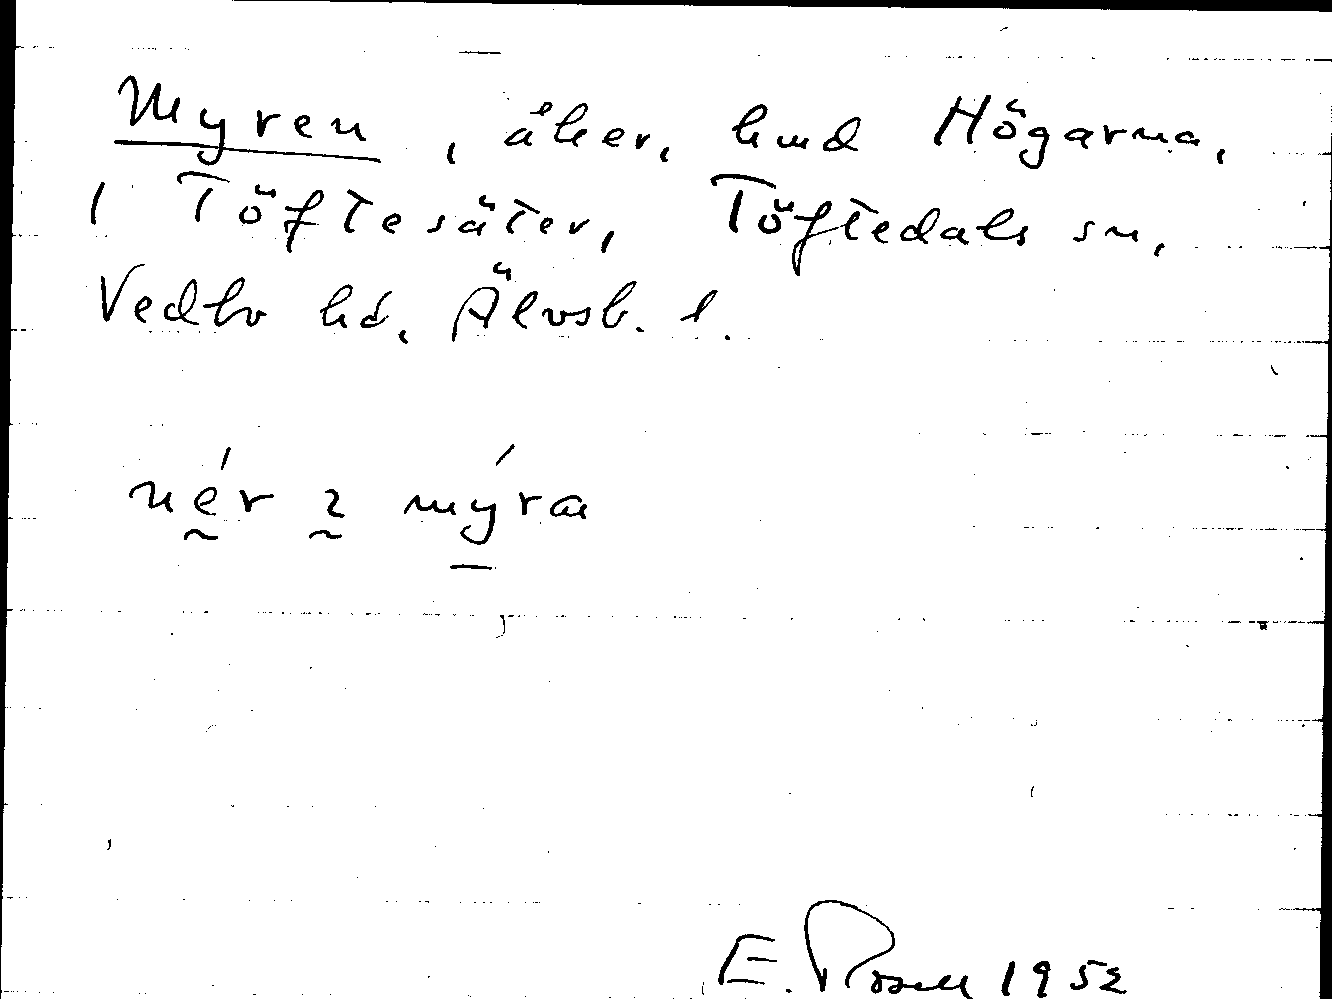 Myren, åker, hmd Högarna,
1 Töftesäter, Töftedals sn,
Vedbo hd, Älvsb. l.
nér ɩ mýra
E. Rosell 1952